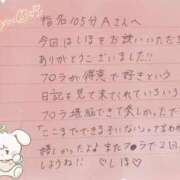 指名105分Aさんへ
今回はしほをお誘いいただき
ありがとうございました!!
フロラが得意で好きという
日記も見て来てくれている
フロラ堪能できて楽しかったで
ここまでできる子いないってほめ
嬉しかったよ また フ●ラで2回
しようね!! ♡しほ♡